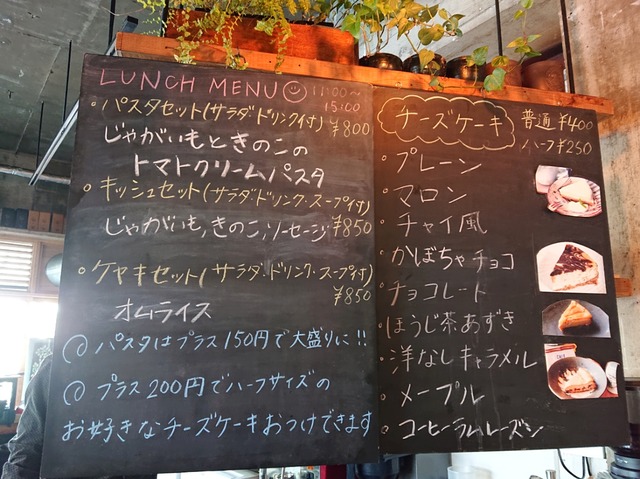 LUNCH MENU 11:00〜
15:00
・パスタセット(サラダ・ドリンク付) ¥800
じゃがいもときのこの
トマトクリームパスタ
・キッシュセット(サラダ・ドリンク・スープ付)
じゃがいも,きのこ,ソーセージ ¥850
・ケヤキセット(サラダ・ドリンク・スープ付)
¥850
オムライス
◎パスタはプラス150円で大盛りに!!
◎プラス200円でハーフサイズの
お好きなチーズケーキおつけできます
チーズケーキ 普通 ¥400
ハーフ ¥250
・プレーン
・マロン
・チャイ風
・かぼちゃチョコ
・チョコレート
・ほうじ茶あずき
・洋なしキャラメル
・メープル
・コーヒーラムレーズン